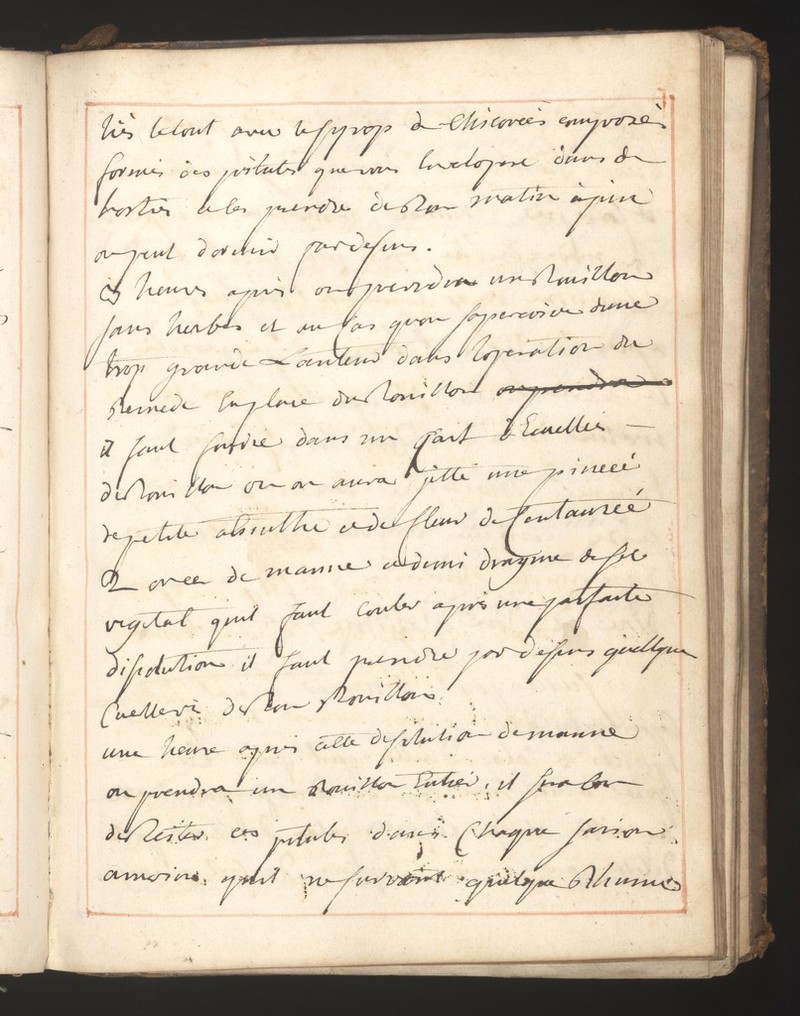 liés le tout avec le syrop de Chicorées composées
formés des pilules que vous Envelopere dans de
hosties a les prendre de bon matin à jeun
on peut dormir par desus.
heures apres on prendra un Bouillon
sans herbes et au Cas quon sapercoive dune
trop grande Lanteur dans loperation du
Remede En place du Bouillon on prendra
il faut fondre dans un quart d'Ecuellée
de Bouillon ou on aura jetté une pincée
de petite absinthe et de fleur de Centaureé
2 once de manne et demi dragme de sel
vegetal quil faut Couler apres une parfaite
disolution il faut prendre par desus quelque
Cuelleré de bon Bouillon
une heure apres cette desolution de manne
on prendra un Bouillon Entier, il sera bon
de Reiter ces pilules dans Chaque saison
amoins quil ne quelque Rhume